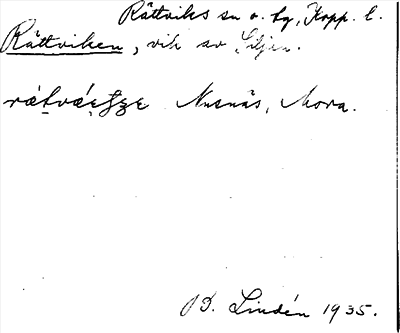 Rättviks sn o. tg, Kopp. l.
Rättviken, vik av Siljan.
Nusnäs, Mora.
B. Lindén 1935.